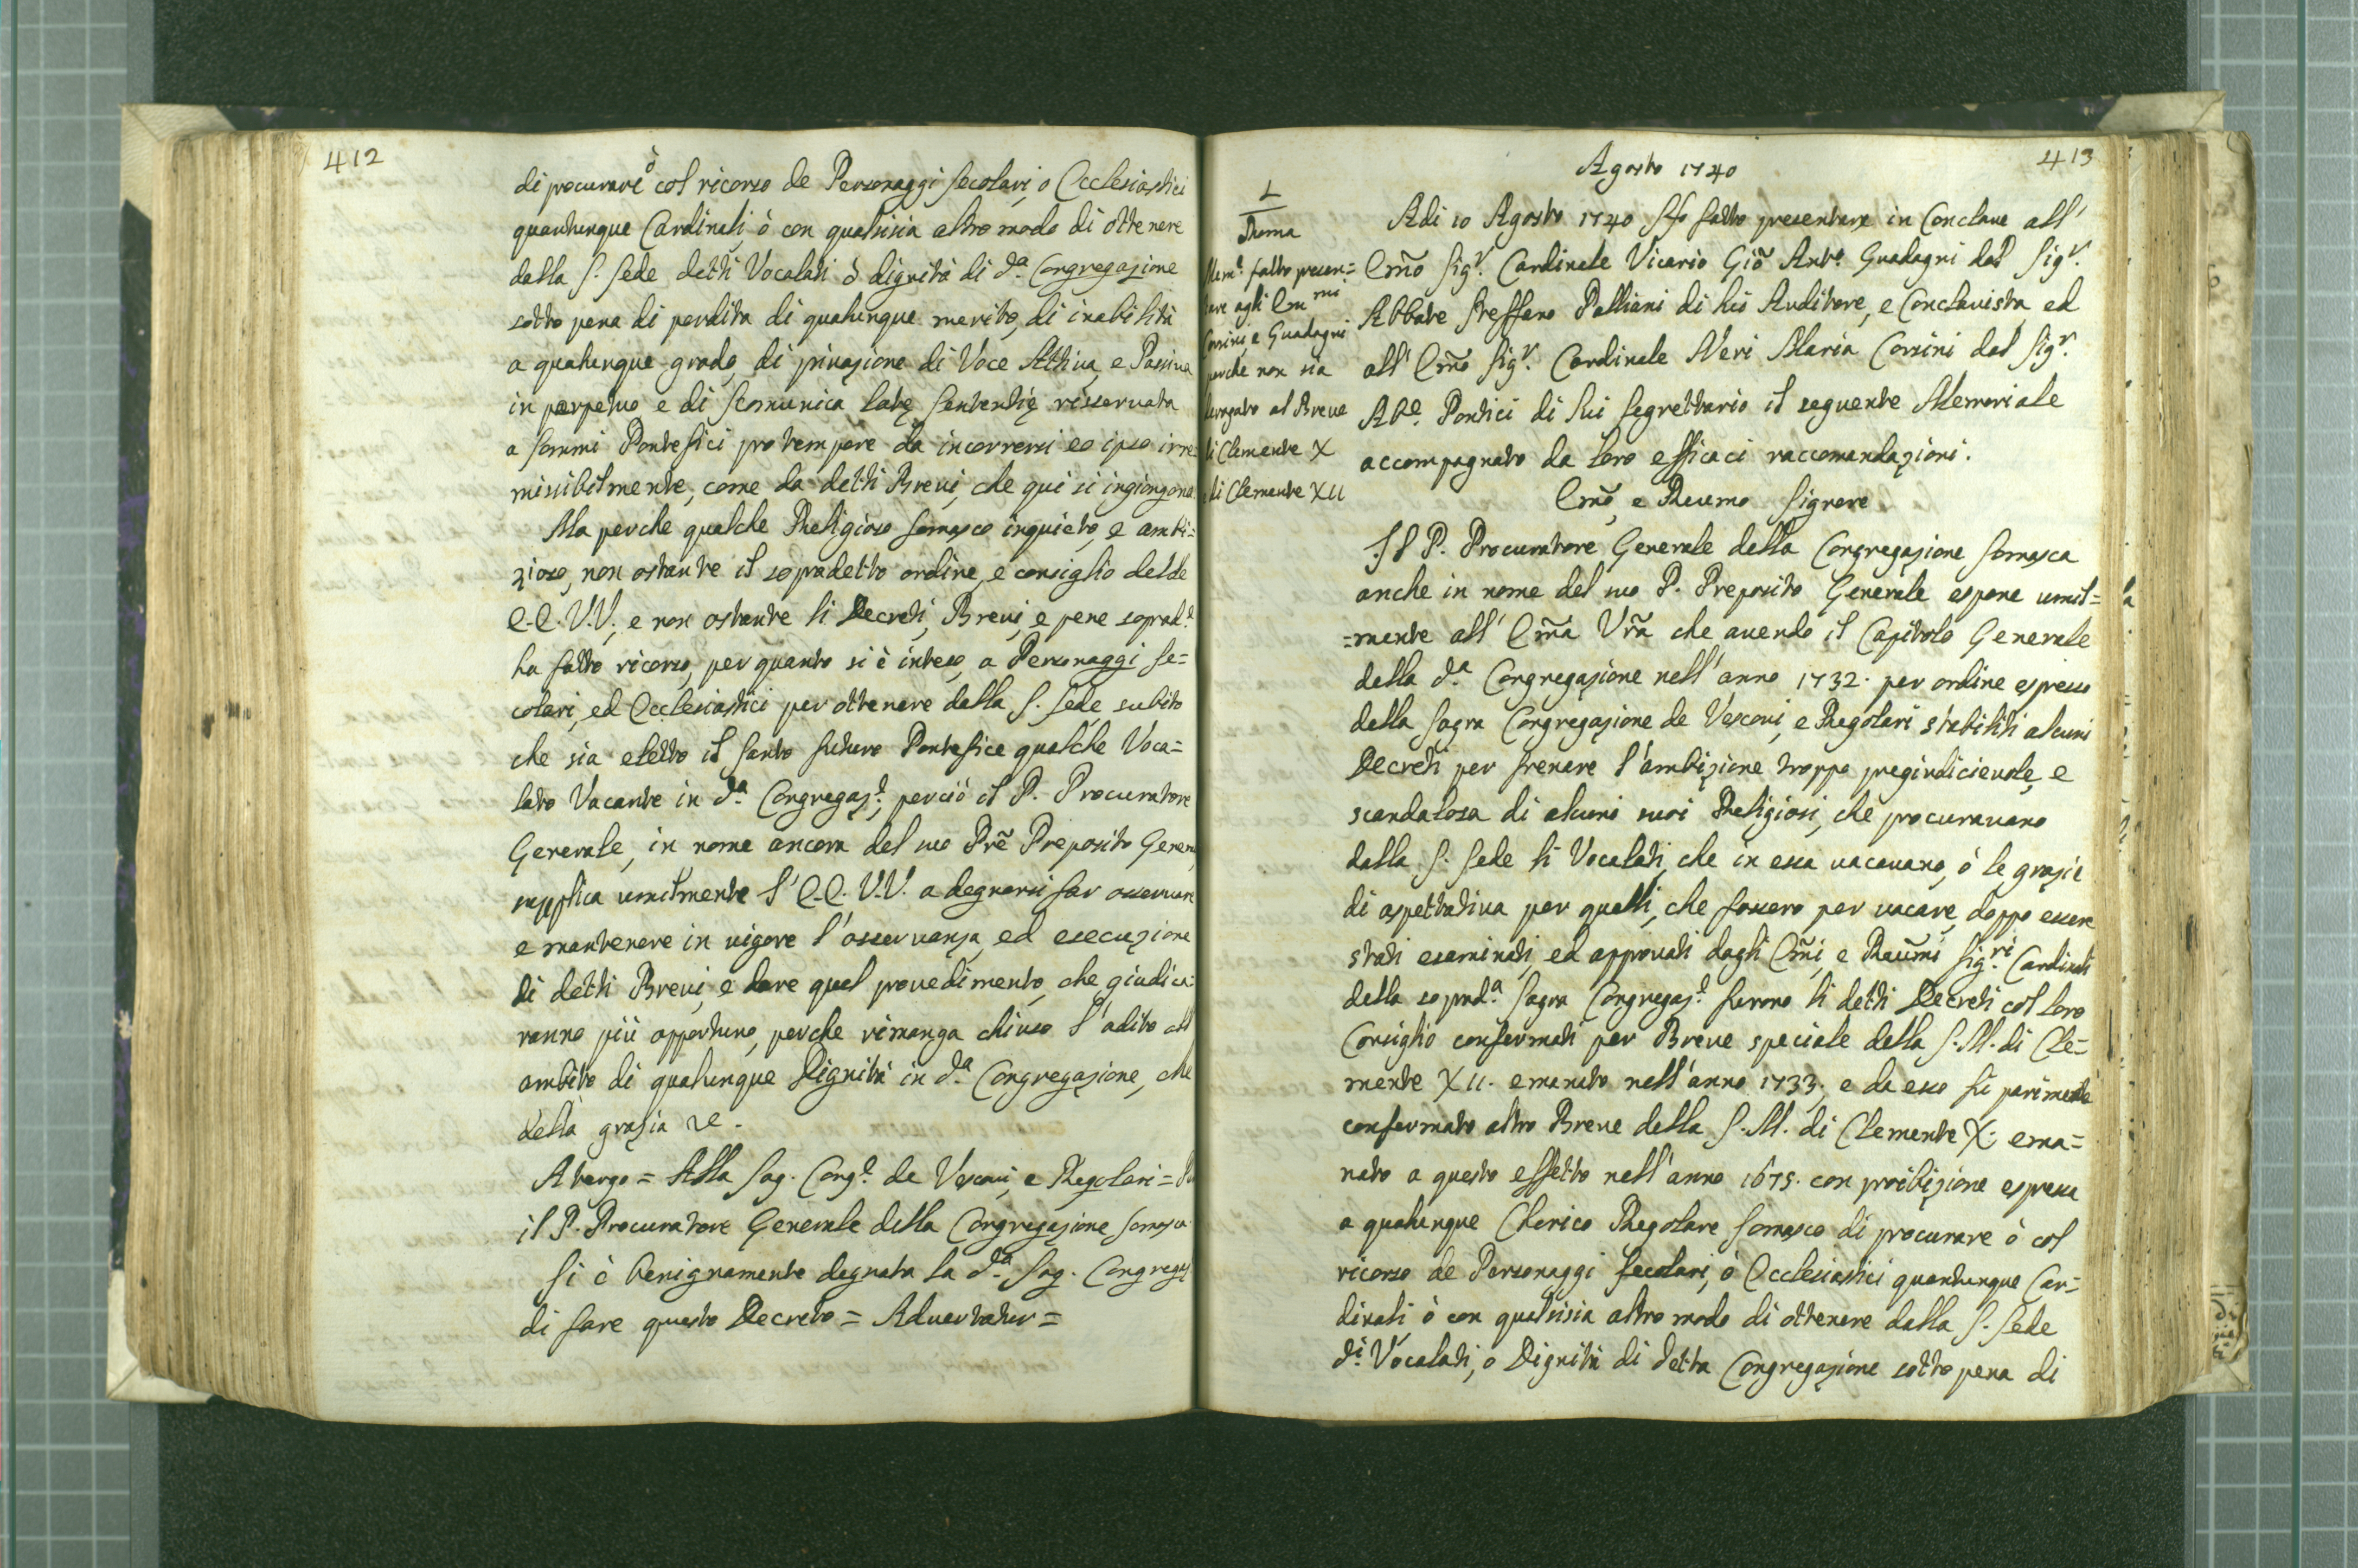 412
di procurare ò col ricorso de Personaggi secolari, o Ecclesiastici
quantunque Cardinali, ò con qualsisia altro modo di ottenere
dalla S. Sede detti Vocalati ò dignità di d.a Congregazione
sotto pena di perdita di qualunque merito, di inabilità
a qualunque grado, di privazione di Voce Attiva, e Passiva
in perpetuo e di scomunica latę sententię risservata
a sommi Pontefici pro tempore da incorrersi eo ipso irre=
missibilmente, come da detti Brevi, che qui si ingiongono
Ma perche qualche Religioso Somasco inquieto, e ambi=
zioso, non ostante il sopradetto ordine, e consiglio dell'
E.E. V.V., e non ostante li Decreti, Brevi, e pene soprad.e
ha fatto ricorso, per quanto si è inteso, a Personaggi se=
colari, ed Ecclesiastici per ottenere dalla S. Sede subito
che sia eletto il Santo futuro Pontefice qualche Voca=
lato Vacante in d.a Congregaz.e, perciò il P. Procuratore
Generale, in nome ancora del suo Prē Preposito Gener
supplica umilmente l'E.E. V.V. a degnarsi far osservare
e mantenere in vigore l'osservanza, ed esecuzione
di detti Brevi, e dare quel provedimento, che giudica=
ranno più opportuno, perche rimanga chiuso l'adito all
ambito di qualunque Dignità in d.a Congregazione, che
della grazia ve.
A tergo = Alla Sag. Cong.e de Vescovi, e Regolari =
il P. Procuratore Generale della Congregazione Somasca
Si è benignamente degnata la d.a Sag. Congregaz
di fare questo Decreto = Advertatur =
413
Agosto 1740
L
Roma
Mem.e fatto presen=
tare agli Em.mi
Corsini, e Guadagni
perche non sia
derogato al Breve
di Clemente X
di Clemente XII
Adi 10 Agosto 1740 Ho fatto presentare in Conclave all'
Em̃o Sig.r Cardinale Vicario Giõ Ant.o Guadagni dal Sig.r
Abbate Steffano Palliani di lui Auditore, e Conclavista, ed
all' Em̃o Sig.r Cardinale Neri Maria Corsini dal Sig.r
Ab.e Pontici di lui Segrettario il seguente Memoriale
accompagnato da loro efficaci raccomandazioni.
Em̃o, e Revmo Signore
Il P. Procuratore Generale della Congregazione Somasca
anche in nome del suo P. Preposito Generale espone umil=
=mente all' Em̃a Vrã che avendo il Capitolo Generale
della d.a Congregazione nell'anno 1732. per ordine espresso
della Sagra Congregazione de Vescovi, e Regolari stabiliti alcuni
Decreti per frenare l'ambizione troppo pregiudicievole, e
scandalosa di alcuni suoi Religiosi, che procuravano
dalla S. Sede li Vocalati, che in essa vacavano, ò le grazie
di aspettativa per quelli, che fossero per vacare, doppo essere
stati esaminati, ed approvati dagli Em̃i, e Ravm̃i Sig.ri Cardinali
della soprad.a Sagra Congregaz.e furono li detti Decreti col loro
Consiglio confermati per Breve speciale della S.M. di Cle=
mente XII. emanato nell'anno 1733. e da esso fù parimente
confermato altro Breve della S.M. di Clemente X. ema=
nato a questo effetto nell'anno 1675. con proibizione espressa
a qualunque Clerico Regolare Somasco di procurare ò col
ricorso de Personaggi secolari, ò Ecclesiastici quantunque Car=
dinali ò con qualsisia altro modo di ottenere dalla S. Sede
d.i Vocalati, o Dignità di detta Congregazione sotto pena di